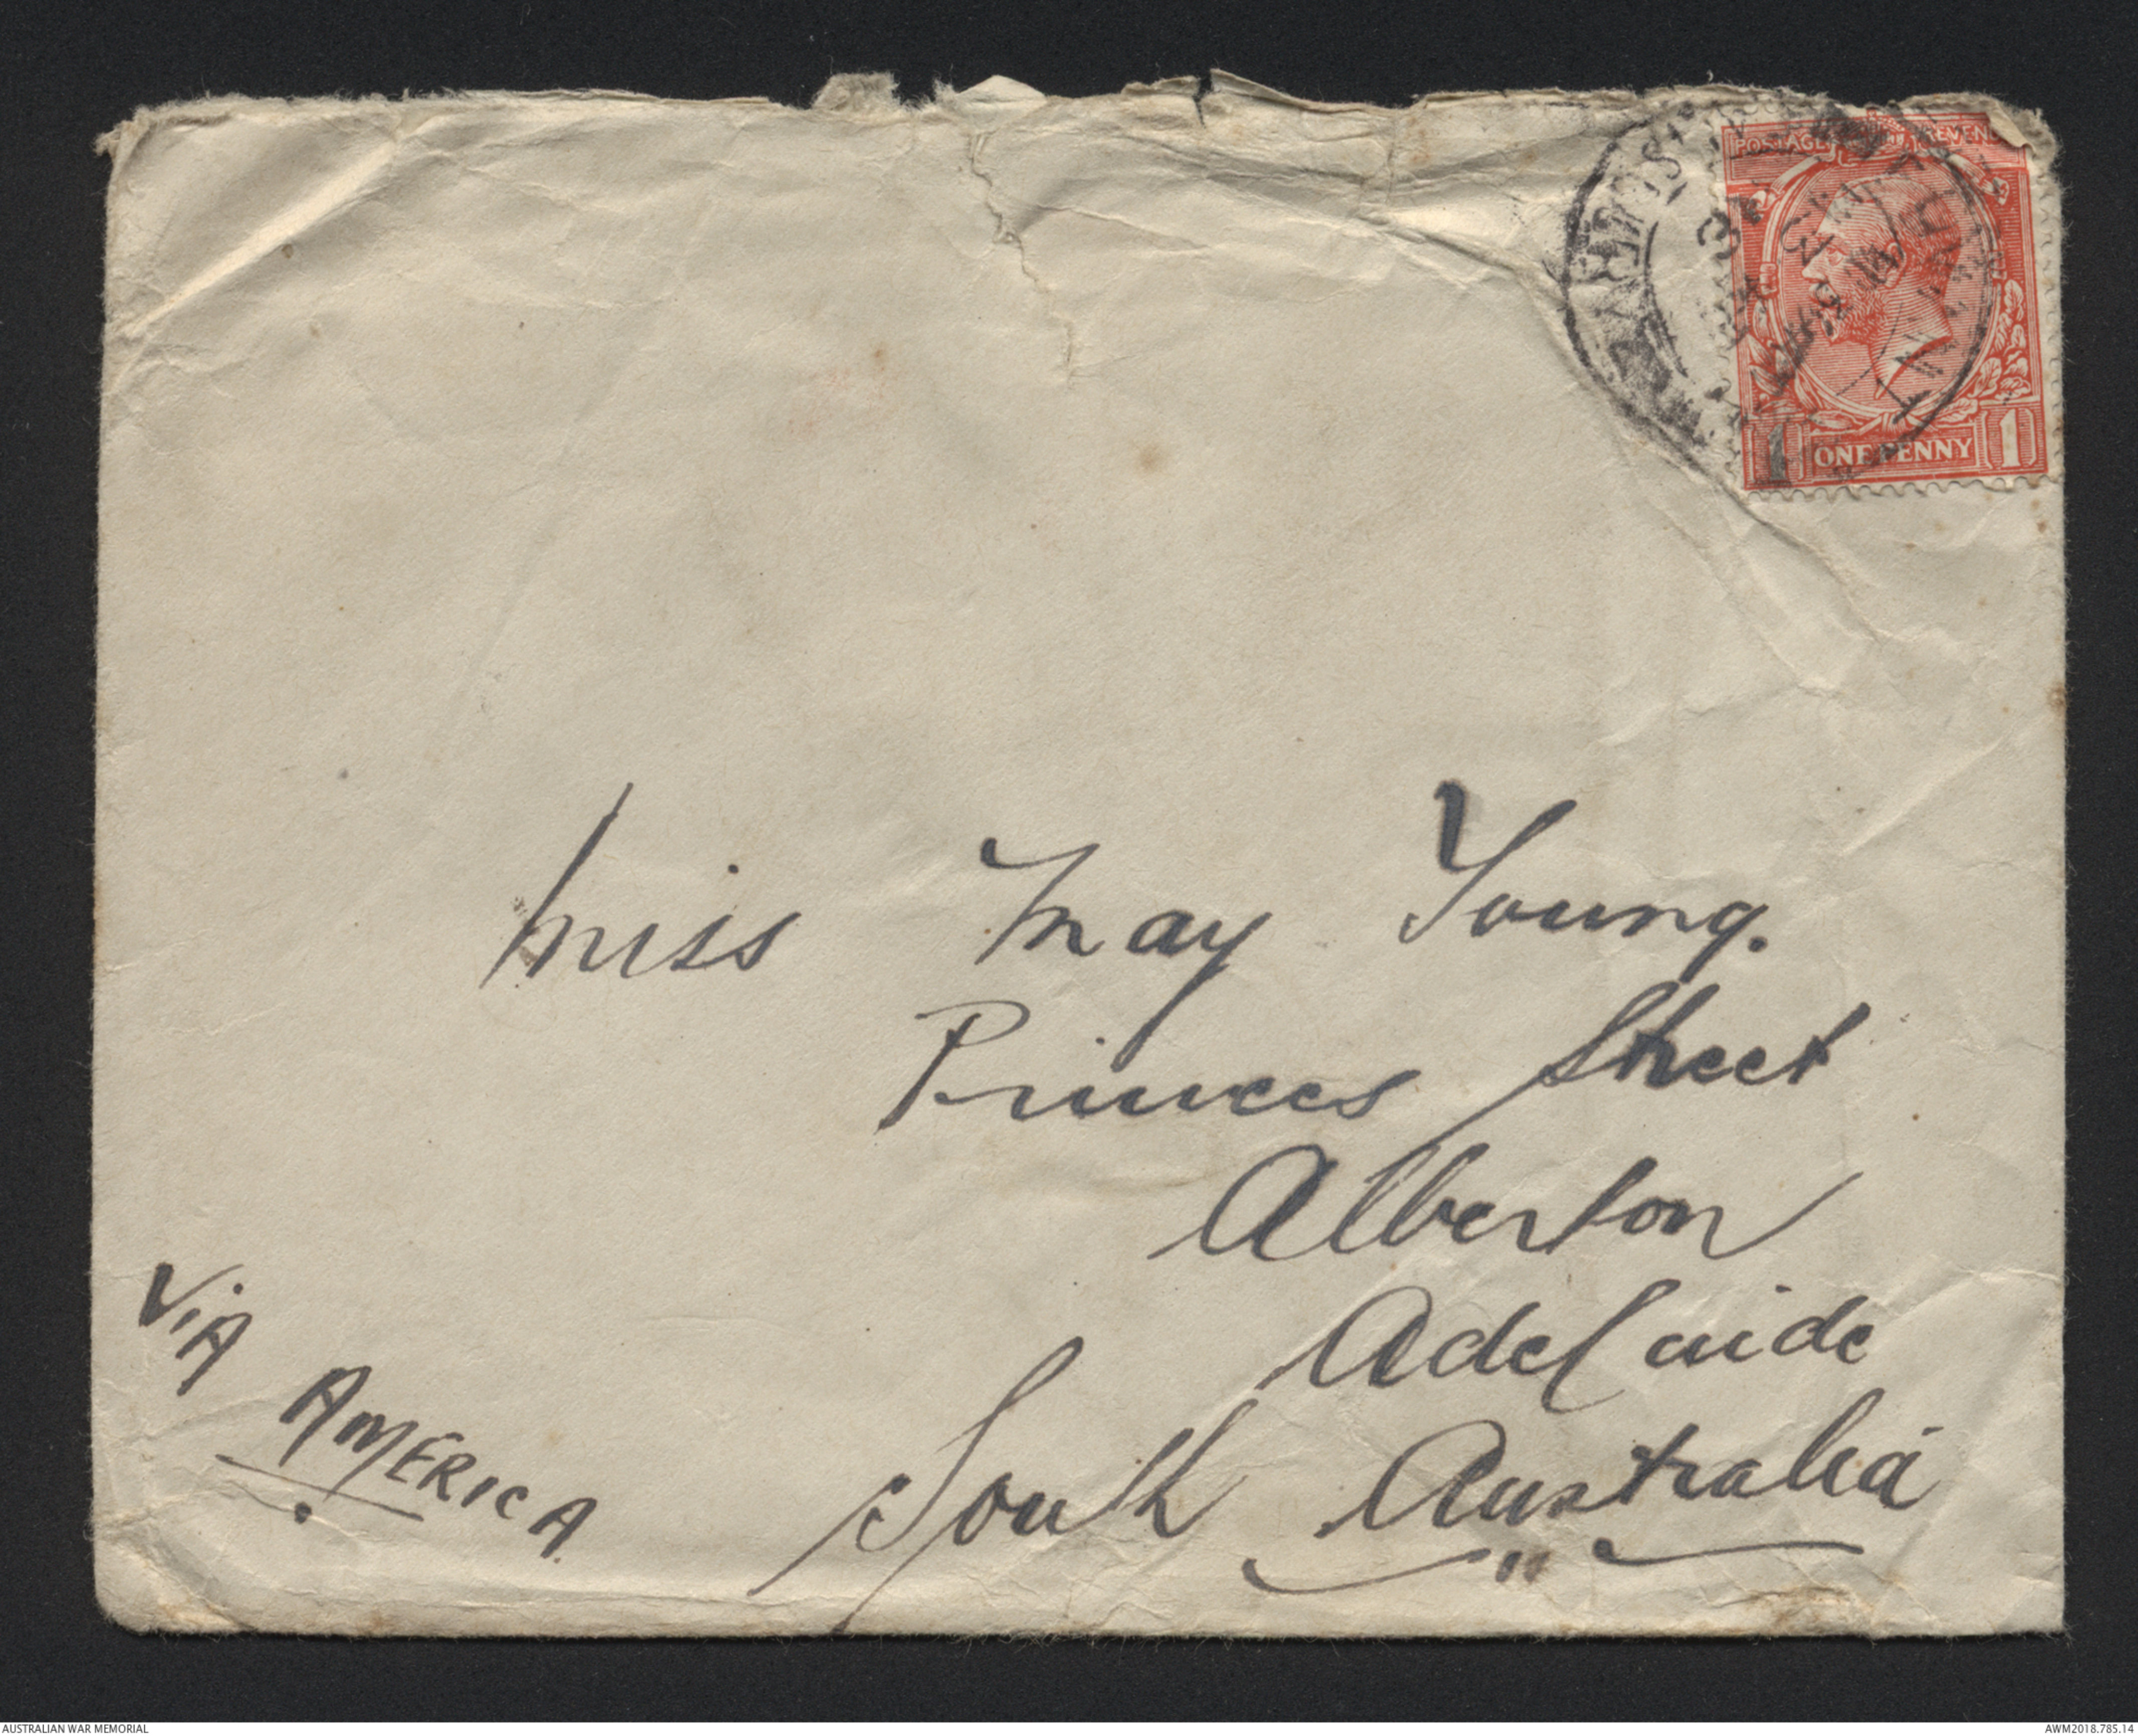 POSTAGE REVENUE
ONE PENNY 1
Miss May Young.
Princes Street
Alberton
Adelaide
South Australia
Via
AMERICA
AUSTRALIAN WAR MEMORIAL
AWM2018.785.14